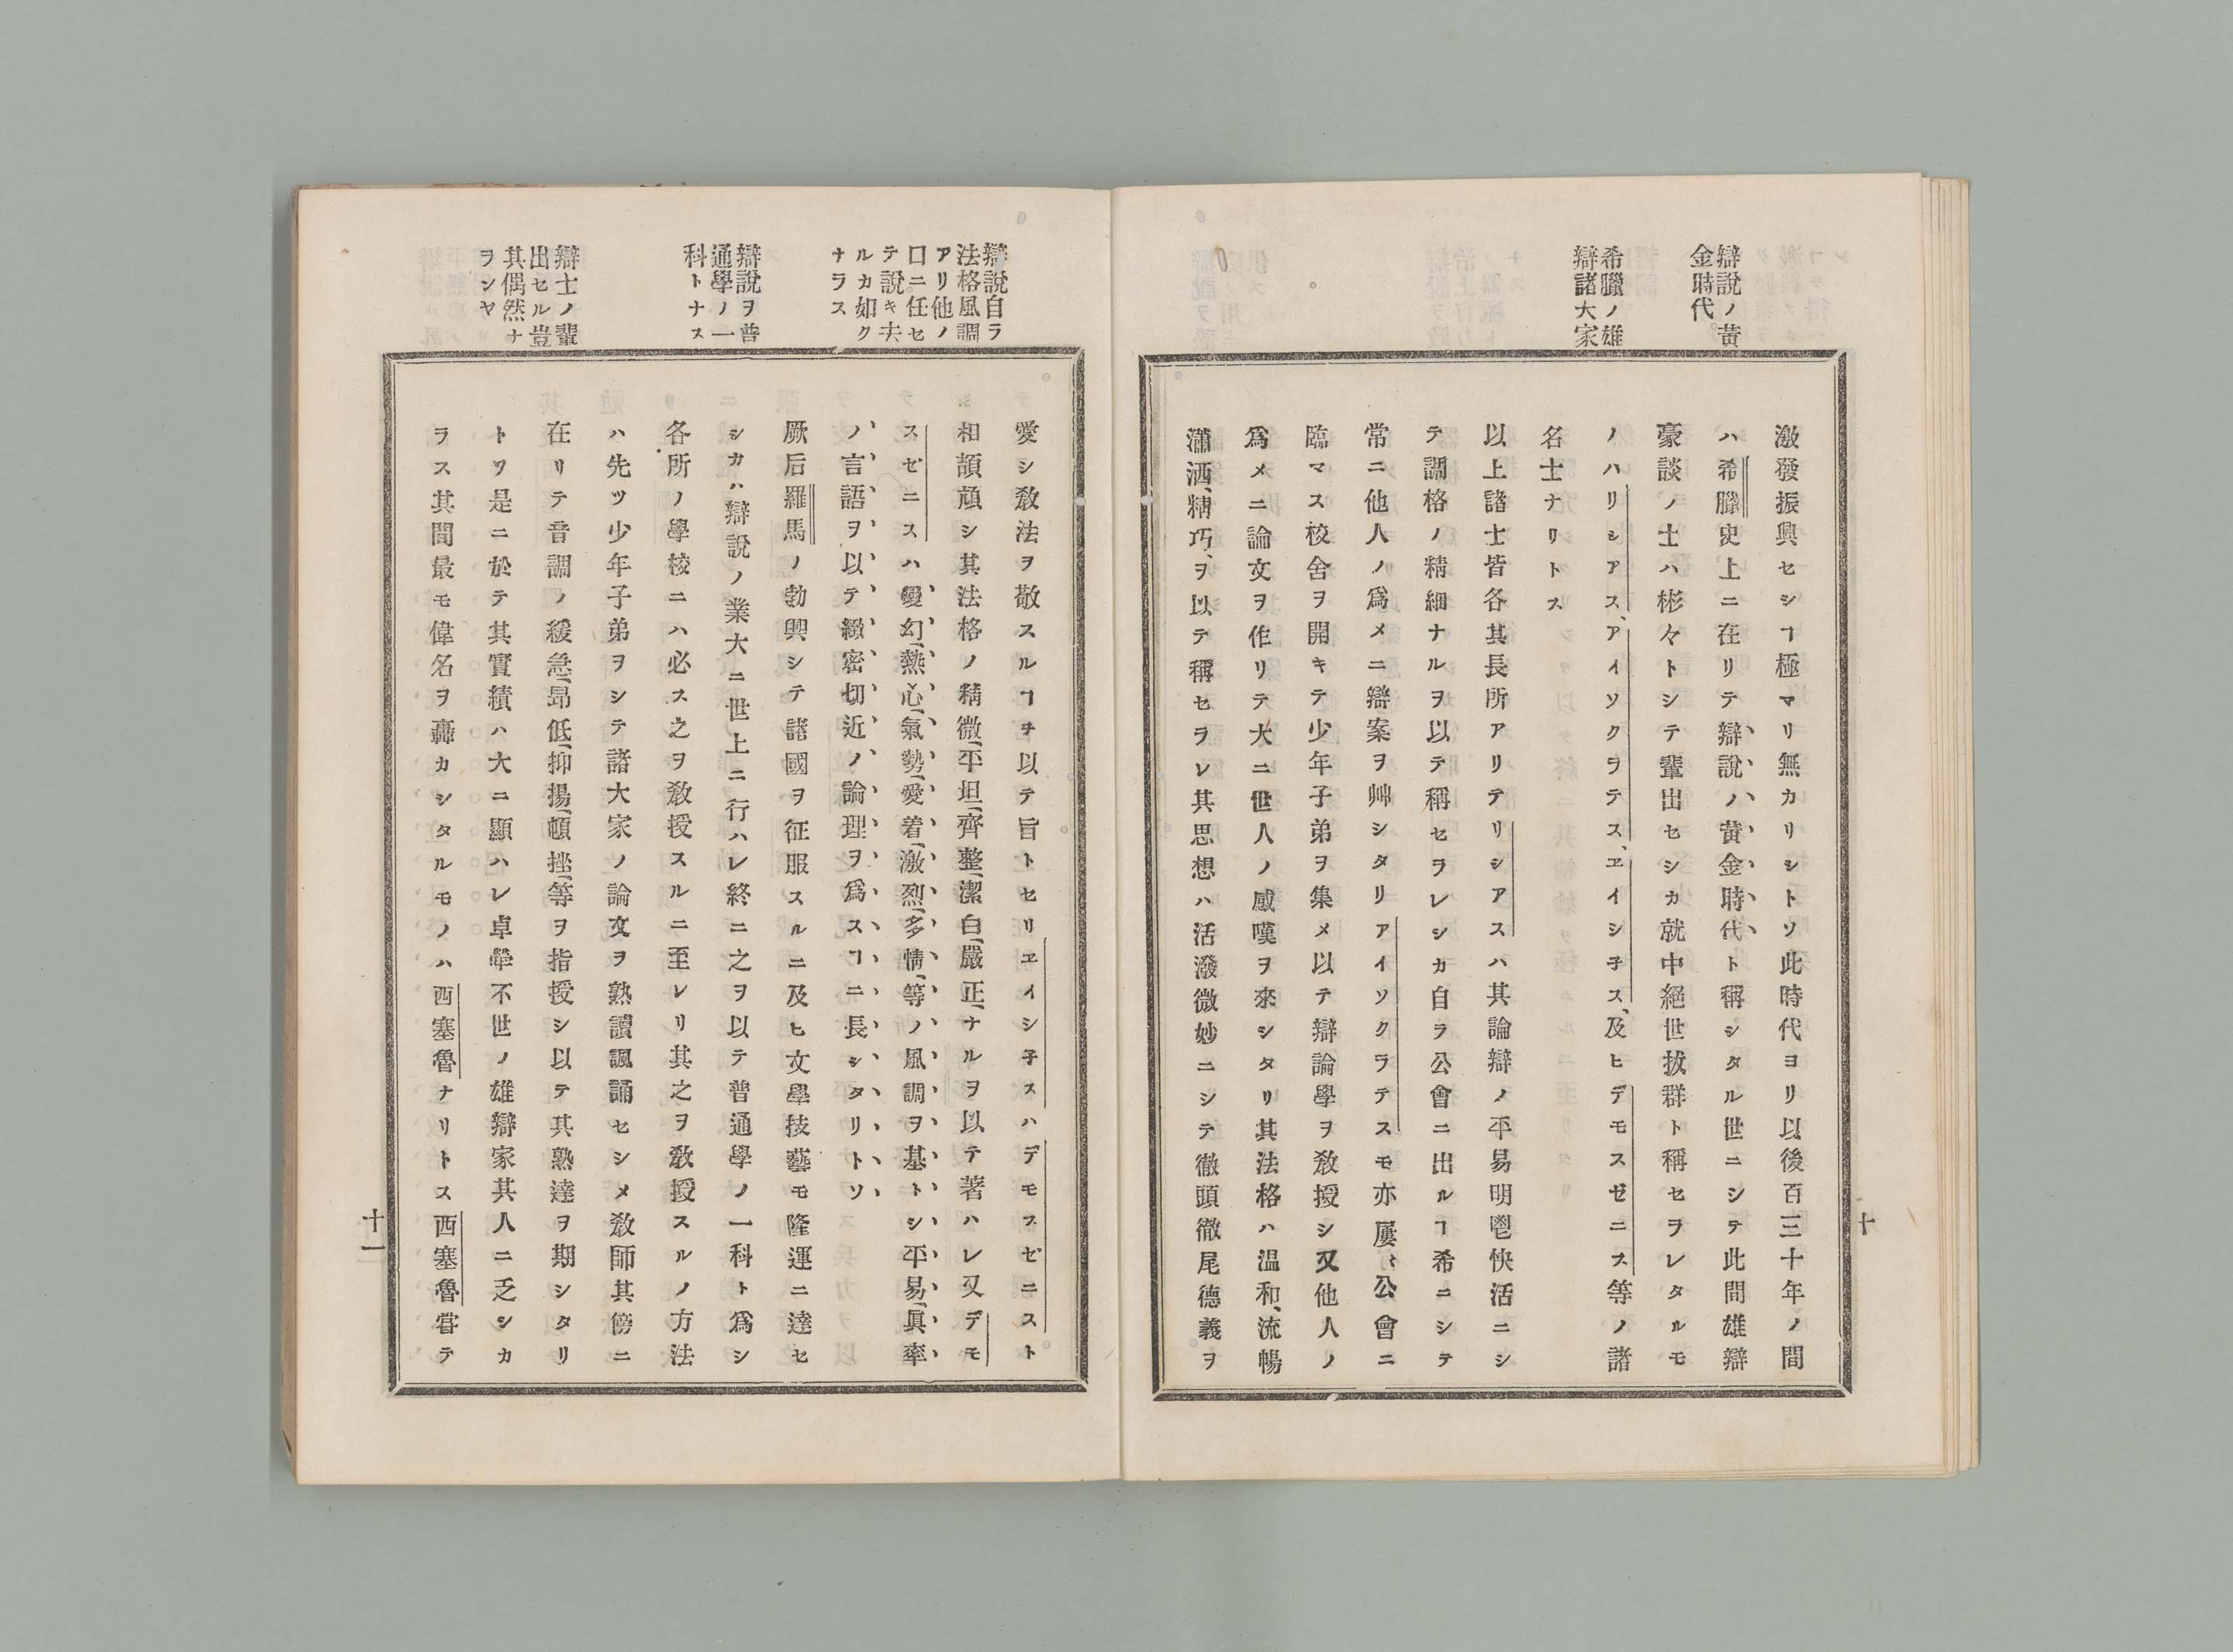 辯說ノ黃
金時代
希臘ノ雄
辯諸大家
激發振興セシヿ極マリ無カリシトソ此時代ヨリ以後百三十年ノ間
ハ希臘史上ニ在リテ辯說ノ黃金時代ト稱シタル世ニシテ此間雄辯
豪談ノ士ハ彬々トシテ輩出セシカ就中絕世拔群ト稱セラレタルモ
ノハリシアス、アイソクラテス、ヱイシ子ス、及ヒデモスゼニス等ノ諸
名士ナリトス
以上諸士皆各其長所アリテリシアスハ其論辯ノ平易明鬯快活ニシ
テ調格ノ精細ナルヲ以テ稱セラレシカ自ラ公會ニ出ルヿ希ニシテ
常ニ他人ノ爲メニ辯案ヲ艸シタリアイソクラテスモ亦屢〻公會ニ
臨マス校舍ヲ開キテ少年子弟ヲ集メ以テ辯論學ヲ敎授シ又他人ノ
爲メニ論文ヲ作リテ大ニ世人ノ感嘆ヲ來シタリ其法格ハ溫和、流暢
瀟洒、精巧、ヲ以テ稱セラレ其思想ハ活潑微妙ニシテ徹頭徹尾德義ヲ
十
辯說自ラ
法格風調
アリ他ノ
口ニ任セ
テ說キ去
ルカ如ク
ナラス
辯說ヲ普
通學ノ一
科トナス
辯士ノ輩
出セル豈
其偶然ナ
ヲシヤ
愛シ敎法ヲ敬スルヿヲ以テ旨トセリヱイシ子スハデモスゼニスト
相頡頏シ其法格ノ精微、平坦、齊整、潔白、嚴正、ナルヲ以テ著ハレ又デモ
スゼニスハ變幻、熱心、氣勢、愛着、激烈、多情、等ノ風調ヲ基トシ平易、眞率
ノ言語ヲ以テ緻密切近ノ論理ヲ爲スヿニ長シタリトソ
厥后羅馬ノ勃興シテ諸國ヲ征服スルニ及ヒ文學技藝モ隆運ニ達セ
シカハ辯說ノ業大ニ世上ニ行ハレ終ニ之ヲ以テ普通學ノ一科ト爲シ
各所ノ學校ニハ必ス之ヲ敎授スルニ至レリ其之ヲ敎授スルノ方法
ハ先ツ少年子弟ヲシテ諸大家ノ論文ヲ熟讀諷誦セシメ敎師其傍ニ
在リテ音調ノ緩急、昻低、抑揚、頓挫、等ヲ指授シ以テ其熟達ヲ期シタリ
トソ是ニ於テ其實績ハ大ニ顯ハレ卓犖不世ノ雄辯家其人ニ乏シカ
ラス其間最モ偉名ヲ轟カシタルモノハ西塞魯ナリトス西塞魯嘗テ
十一